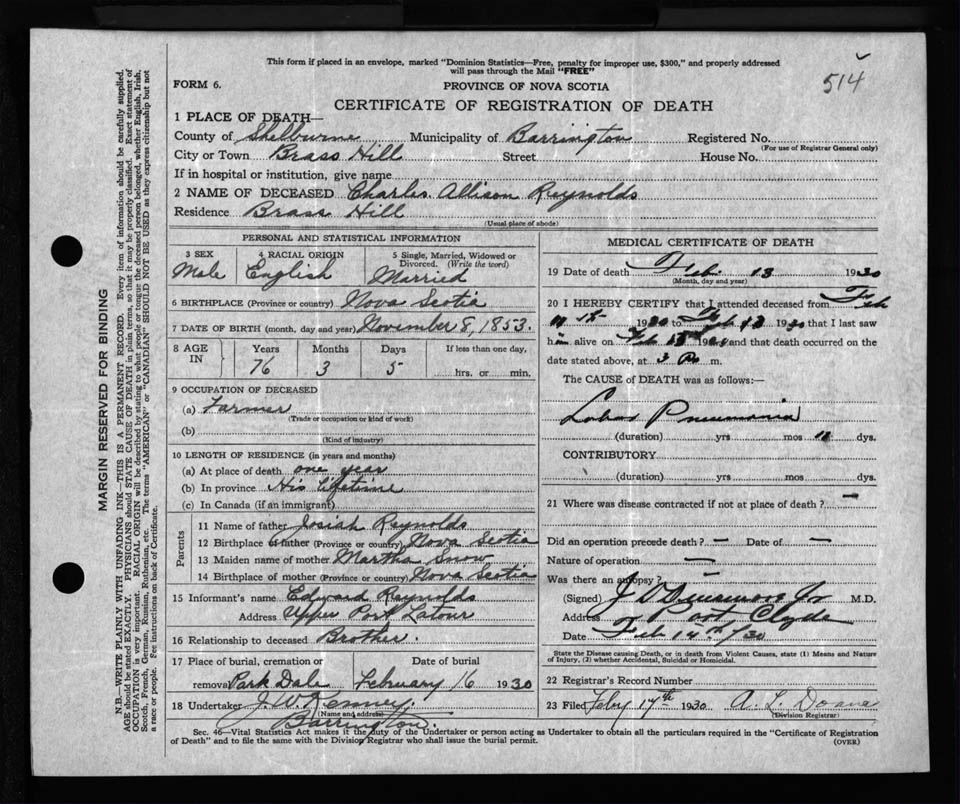 This form if placed in an envelope, marked "Dominion Statistics—Free, penalty for improper use, $300," and properly addressed
will pass through the Mail "FREE"
514
FORM 6.
PROVINCE OF NOVA SCOTIA
CERTIFICATE OF REGISTRATION OF DEATH
1 PLACE OF DEATH—
County of Shelburne Municipality of Barrington Registered No.
(For use of Registrar General only)
City or Town Brass Hill Street House No.
If in hospital or institution, give name
2 NAME OF DECEASED Charles Allison Reynolds
Residence Brass Hill
(Usual place of abode)
PERSONAL AND STATISTICAL INFORMATION
3 SEX 4 RACIAL ORIGIN 5 Single, Married, Widowed or
Divorced. (Write the word)
Male English Married
6 BIRTHPLACE (Province or country) Nova Scotia
7 DATE OF BIRTH (month, day and year) November 8, 1853.
8 AGE IN Years Months Days If less than one day,
76 3 5 hrs. or min.
9 OCCUPATION OF DECEASED
(a) Farmer
(Trade or occupation or kind of work)
(b)
(Kind of industry)
10 LENGTH OF RESIDENCE (in years and months)
(a) At place of death one year
(b) In province His lifetime
(c) In Canada (if an immigrant)
Parents
11 Name of father Josiah Reynolds
12 Birthplace of father (Province or country) Nova Scotia
13 Maiden name of mother Martha Snow
14 Birthplace of mother (Province or country) Nova Scotia
15 Informant's name Edward Reynolds
Address Upper Port Latour
16 Relationship to deceased Brother.
17 Place of burial, cremation or Date of burial
removal Park Dale February 16 1930
18 Undertaker J. W. Kenney
(Name and address)
Barrington.
MEDICAL CERTIFICATE OF DEATH
19 Date of death Feb. 13 1930
(Month, day and year)
20 I HEREBY CERTIFY that I attended deceased from Feb
1930 to Feb 13 1930 that I last saw
him alive on Feb 19 and that death occurred on the
date stated above, at 3 P m.
The CAUSE of DEATH was as follows:—
Lobar Pneumonia
(duration) yrs mos 11 dys.
CONTRIBUTORY
(duration) yrs mos dys.
21 Where was disease contracted if not at place of death? —
Did an operation precede death? — Date of —
Nature of operation —
Was there an autopsy? —
(Signed) M.D.
Address Port Clyde
Date Feb 14th/30
State the Disease causing Death, or in death from Violent Causes, state (1) Means and Nature
of Injury, (2) whether Accidental, Suicidal or Homicidal.
22 Registrar's Record Number
23 Filed Feby 17th 1930 A. L. Doane
(Division Registrar)
Sec. 46—Vital Statistics Act makes it the duty of the Undertaker or person acting as Undertaker to obtain all the particulars required in the "Certificate of Registration
of Death" and to file the same with the Division Registrar who shall issue the burial permit.
(OVER)
MARGIN RESERVED FOR BINDING
N.B.—WRITE PLAINLY WITH UNFADING INK—THIS IS A PERMANENT RECORD. Every item of information should be carefully supplied.
AGE should be stated EXACTLY. PHYSICIANS should STATE CAUSE OF DEATH in plain terms, so that it may be properly classified. Exact statement of
OCCUPATION is very important. RACIAL ORIGIN will be described by stating to what people or tongue the deceased person belonged, whether English, Irish,
Scotch, French, German, Russian, Ruthenian, etc. The terms "AMERICAN" or "CANADIAN" SHOULD NOT BE USED as they express citizenship but not
a race or people. See instructions on back of Certificate.